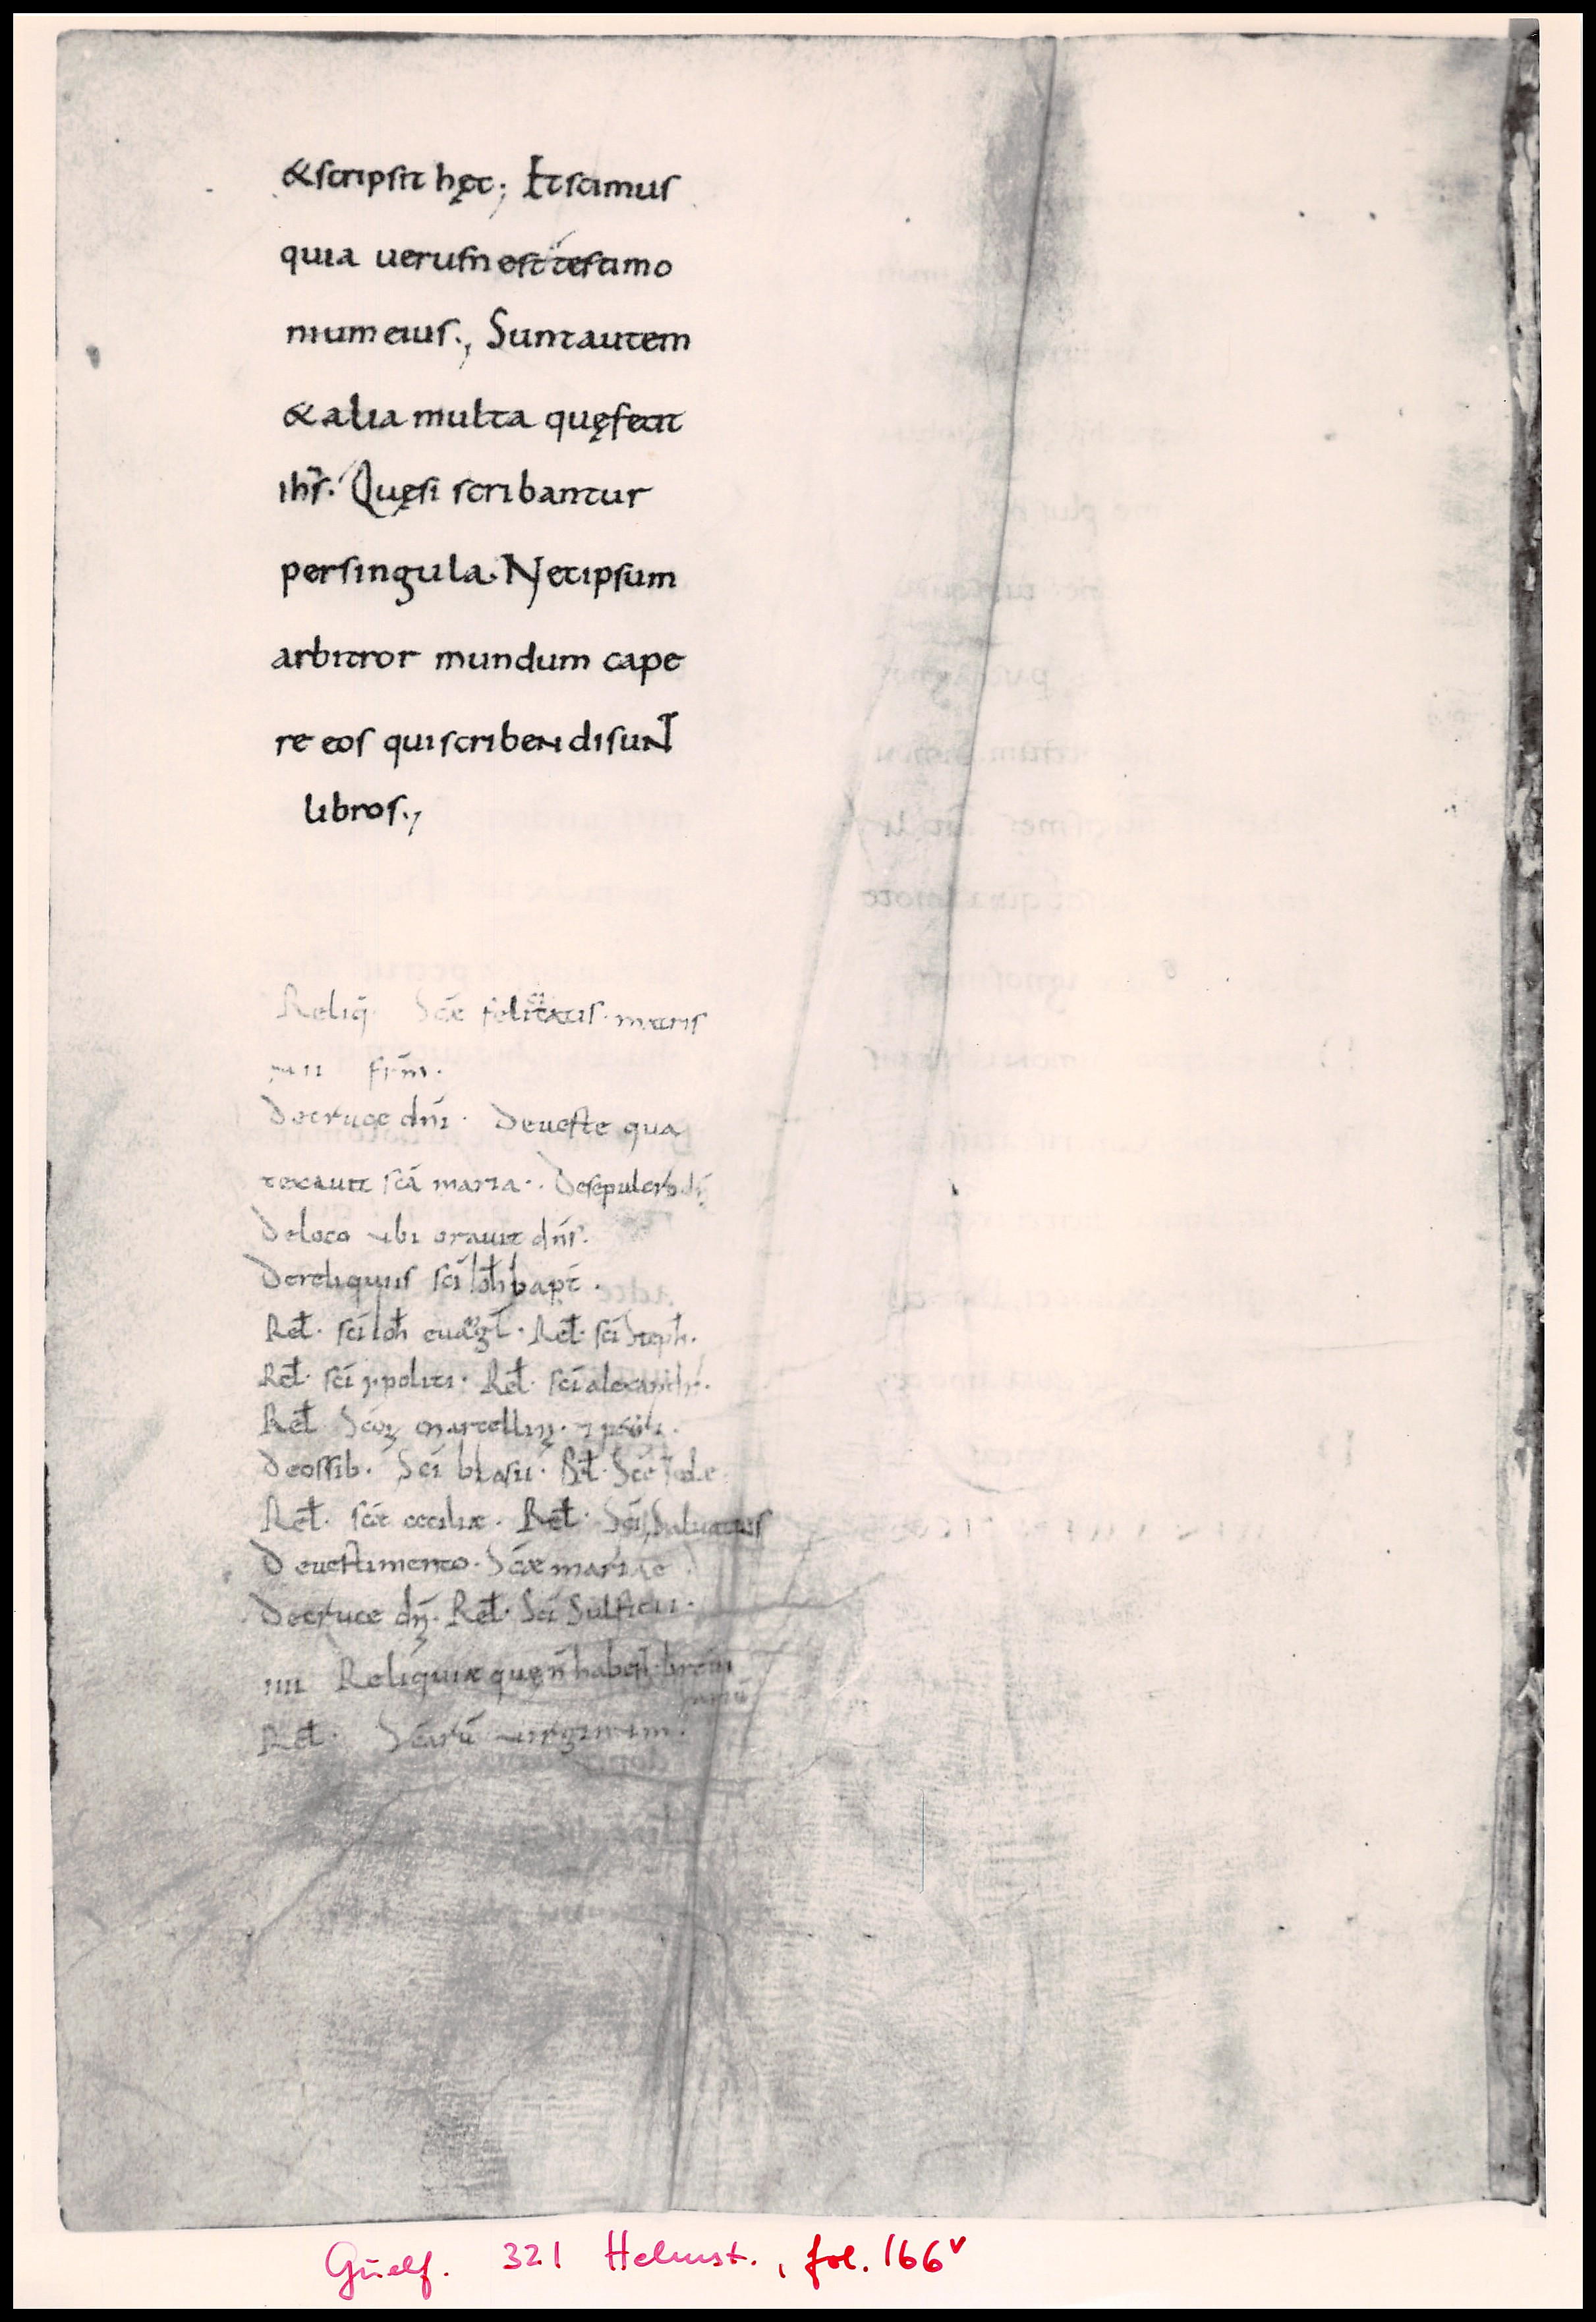 &scripsit hęc; Et scimus
quia uerum est testimo
nium eius., Sunt autem
& alia multa quę fecit
ihs̄. Quę si scribantur
per singula. Nec ipsum
arbitror mundum cape
re eos qui scribendi suNT
libros.,
Reliq̄ Scæ felicitatis. matris
VII
De cruce dn̄i. De ueste qua
texauit scā maria. De sepulcro dn̄i
De loco ubi orauit dn̄s.
De reliquiis sc̄i ioh bapt̄.
Reł. sc̄i ioh euãgł. Reł. sc̄i Steph.
Reł. sc̄i ypoliti. Reł. sc̄i alexandr.
Reł. Scoꝝ marcellini.
De ossib. Sc̄i blasii. Reł. Scē
Reł. scæ ceciliæ. Reł. Sc̄i Saluatoris
De uestimento. Scæ mariae
De cruce dn̄i. Reł. Sc̄i Sulpicii.
IIII Reliquiæ quę n̄ habent breuem
Reł. Scarū uirginum.
Guelf. 321 Helmst., fol. 166v